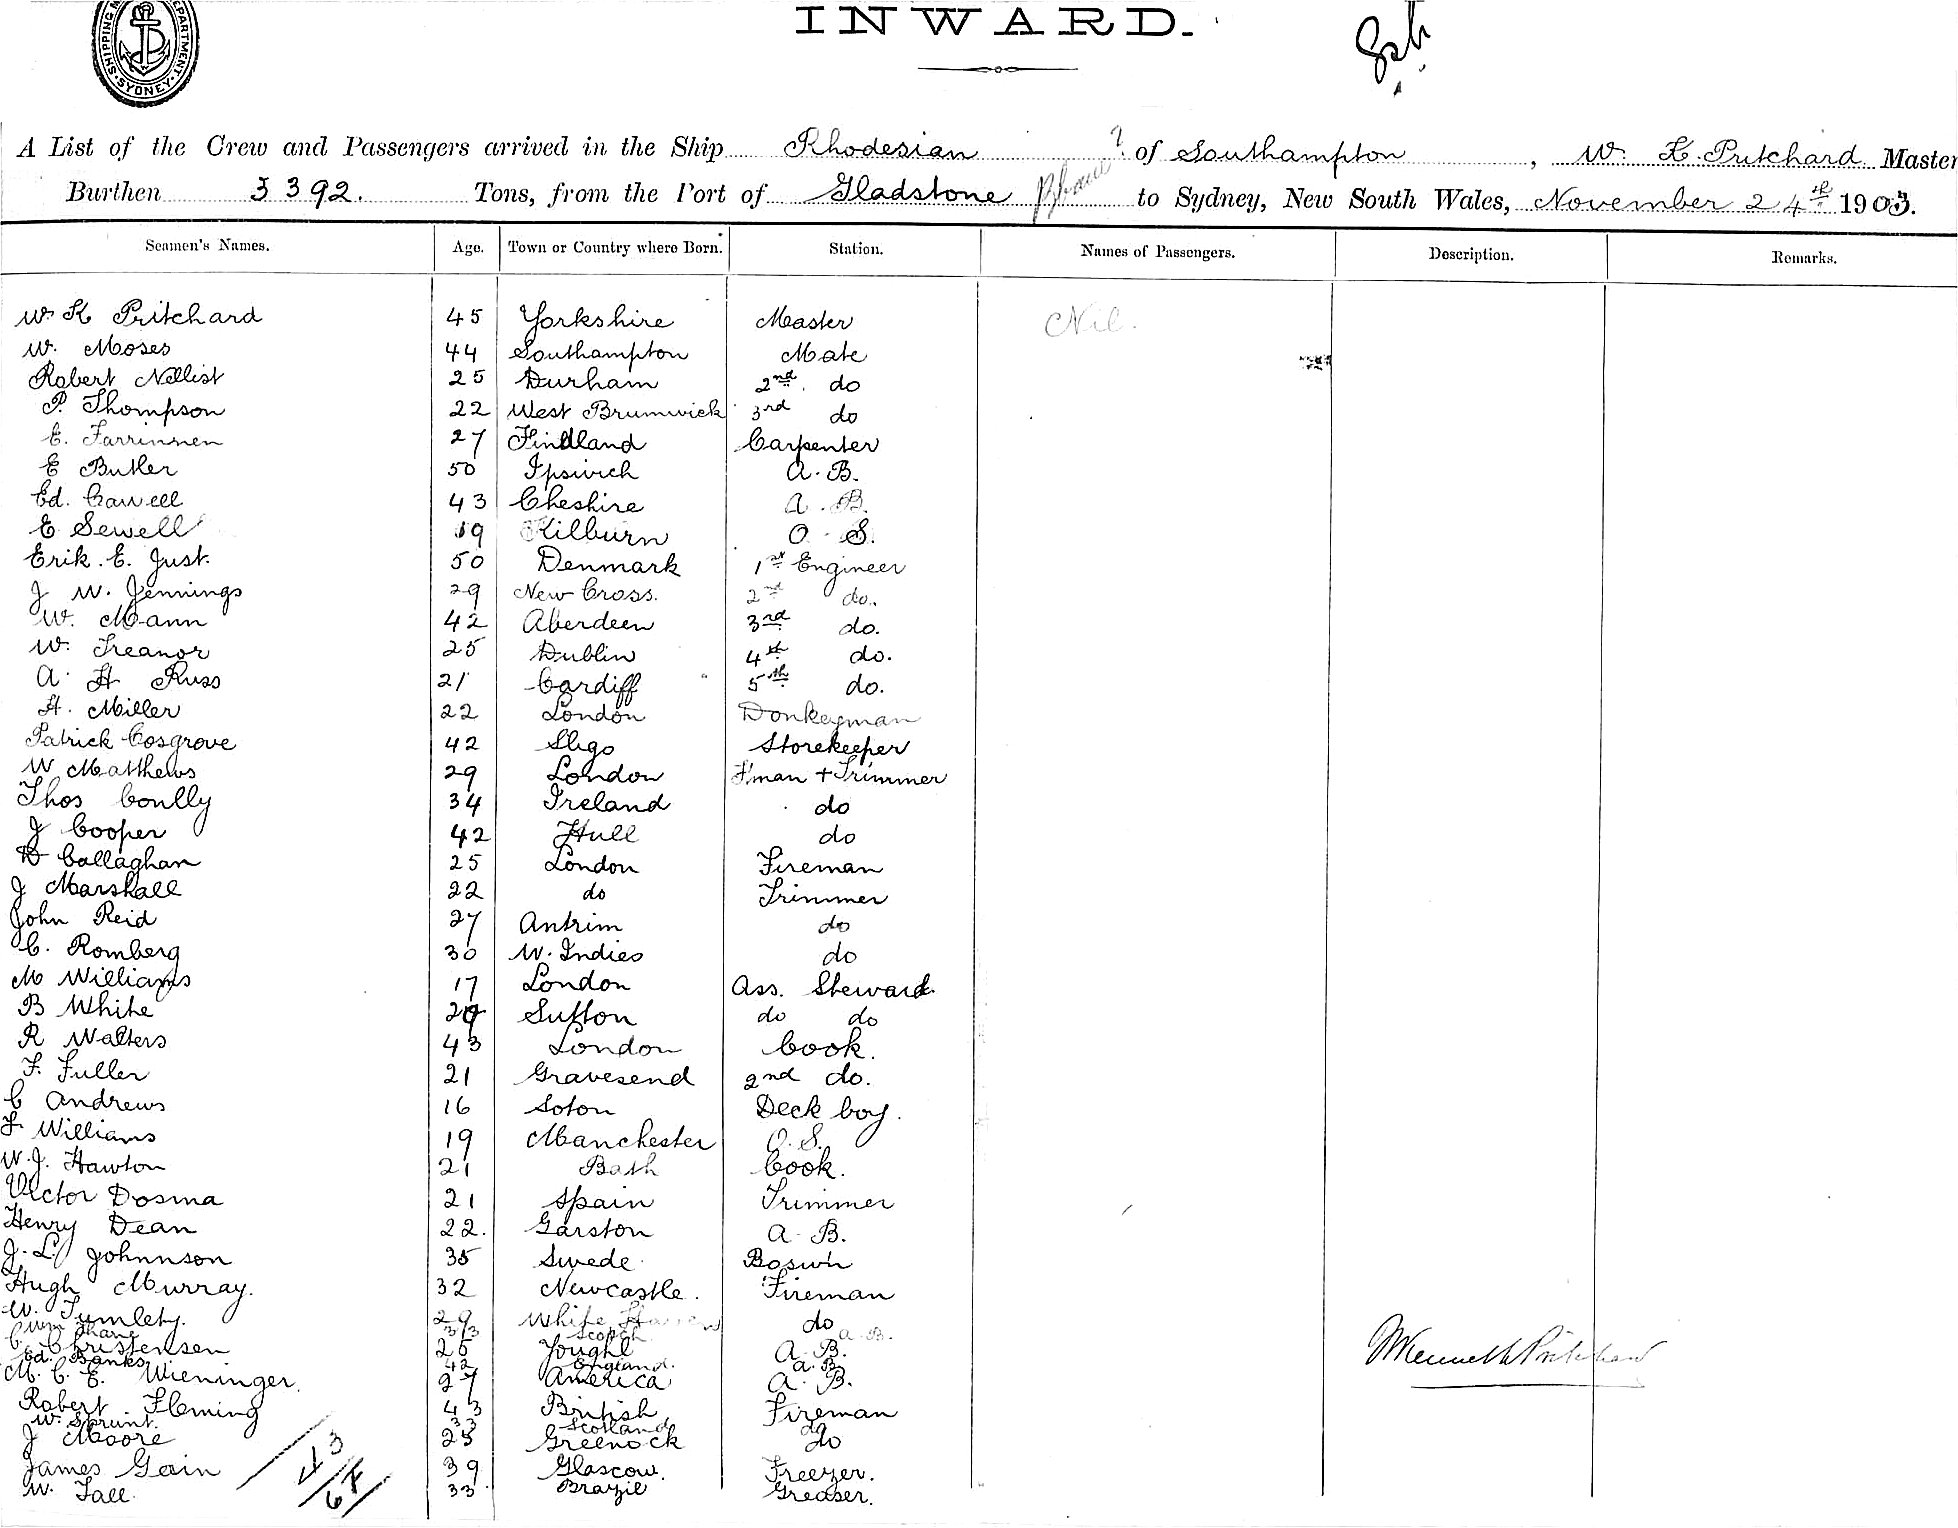 SHIPPING DEPARTMENT · SYDNEY ·
INWARD.
A List of the Crew and Passengers arrived in the Ship Rhodesian ? of Southampton, W. K. Pritchard Master
Burthen 3392. Tons, from the Port of Gladstone to Sydney, New South Wales, November 24th 1903.
Seamen's Names. Age. Town or Country where Born. Station. Names of Passengers. Description. Remarks.
W K Pritchard 45 Yorkshire Master Nil.
W. Moses 44 Southampton Mate
Robert Nellist 25 Durham 2nd. do
P. Thompson 22 West Brumwick 3rd do
E. Farrinnen 27 Findland Carpenter
E Butler 50 Ipswich A. B.
Ed. 43 Cheshire A. B.
E Sewell 19 Kilburn O. S.
Erik. E. Just. 50 Denmark 1st Engineer
J W. Jennings 29 New Cross. 2nd do.
W. Mann 42 Aberdeen 3rd do.
W. Treanor 25 Dublin 4th do.
A. H Russ 21 Cardiff 5th do.
H. Miller 22 London Donkeyman
Patrick Cosgrove 42 Sligo Storekeeper
W Matthews 29 London F'man + Trimmer
Thos Coully 34 Ireland do
J Cooper 42 Hull do
D Callaghan 25 London Fireman
J Marshall 22 do Trimmer
John Reid 27 Antrim do
C. Romberg 30 W. Indies do
M Williams 17 London Ass. Steward.
B White Sutton do do
R Walters 43 London Cook.
F. Fuller 21 Gravesend 2nd do.
C Andrews 16 Soton Deck boy.
F Williams 19 Manchester O. S.
W. J. Hawton 21 Bath Cook.
Victor Dosma 21 Spain Trimmer
Henry Dean 22. Garston A. B.
J. L. Johnnson 35 Swede Bosw'n
Hugh Murray. 32 Newcastle. Fireman
W. Tumlety. 29 White do
Wm 33 Scotch A. B.
C. Christensen 26 Youghl A. B.
Ed. Banks 42 England. A. B.
M. C. E. Wieninger. 27 America A. B.
Robert Fleming 43 British Fireman
W. Sprunt. 33 Scotland do
J Moore 25 Greenock do
James Gain 39 Glascow. Freezer.
W. Tall. 33 Brazil Greaser.
43
67
W Kenneth Pritchard